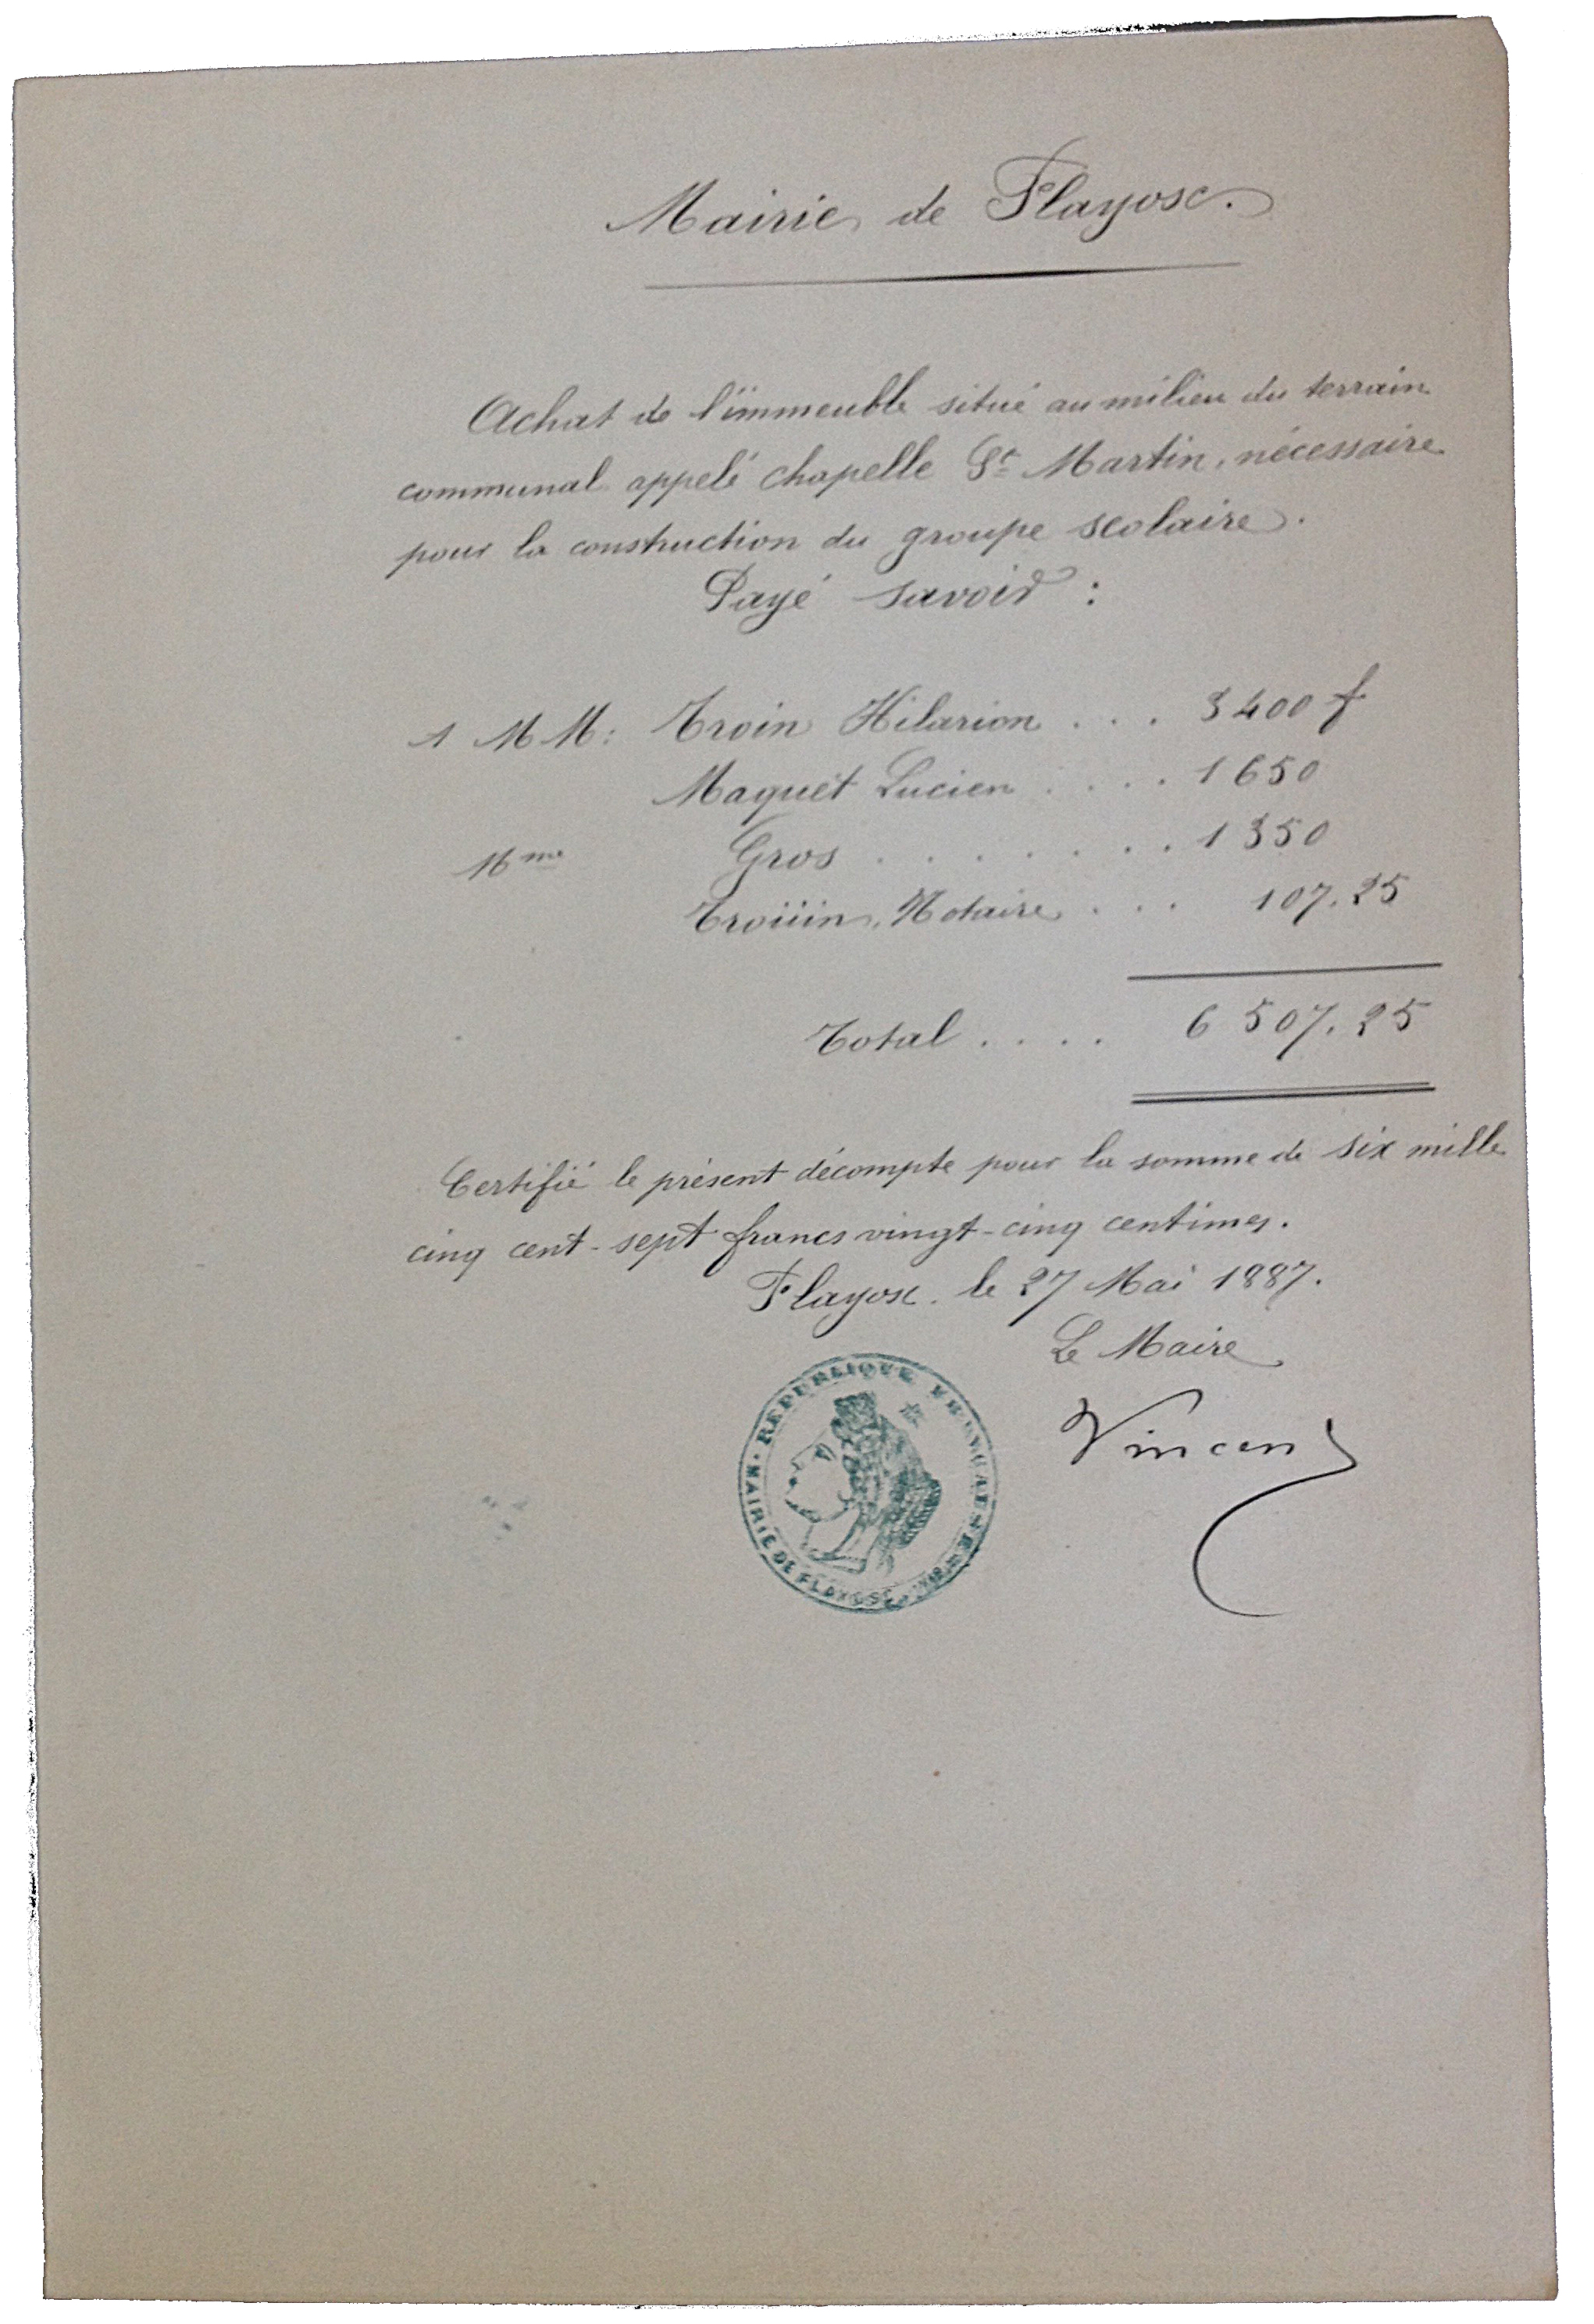 Mairie de Flayosc.
Achat de l'immeuble situé au milieu du terrain
communal appelé chapelle St Martin, nécessaire
pour la construction du groupe scolaire.
Payé savoir :
1 MM: Troin Hilarion . . . 3400 f
Maquet Lucien . . . . 1650
Mme Gros . . . . . . . . 1350
Troüin, Notaire . . . 107.25
Total . . . . 6 507.25
Certifié le présent décompte pour la somme de six mille
cinq cent-sept francs vingt-cinq centimes.
Flayosc. le 27 Mai 1887.
Le Maire
Vincent
REPUBLIQUE FRANCAISE
MAIRIE DE FLAYOSC